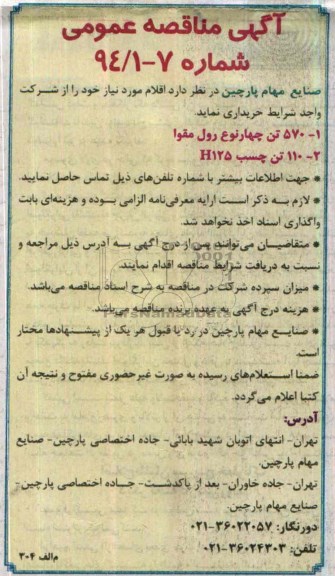 آگهی مناقصه عمومی
شماره ۷-۹۴/۱
صنایع مهام پارچین در نظر دارد اقلام مورد نیاز خود را از شرکت
واجد شرایط خریداری نماید.
۱- ۵۷۰ تن چهارنوع رول مقوا
۲- ۱۱۰ تن چسب H۱۲۵
* جهت اطلاعات بیشتر با شماره تلفن‌های ذیل تماس حاصل نمایید.
* لازم به ذکر است ارایه معرفی‌نامه الزامی بوده و هزینه‌ای بابت
واگذاری اسناد اخذ نخواهد شد.
* متقاضیان می‌توانند پس از درج آگهی به آدرس ذیل مراجعه و
نسبت به دریافت شرایط مناقصه اقدام نمایند.
* میزان سپرده شرکت در مناقصه به شرح اسناد مناقصه می‌باشد.
* هزینه درج آگهی به عهده برنده مناقصه می‌باشد.
* صنایع مهام پارچین در رد یا قبول هر یک از پیشنهادها مختار
است.
ضمنا استعلام‌های رسیده به صورت غیرحضوری مفتوح و نتیجه آن
کتبا اعلام می‌گردد.
آدرس:
تهران- انتهای اتوبان شهید بابائی- جاده اختصاصی پارچین- صنایع
مهام پارچین.
تهران- جاده خاوران- بعد از پاکدشت- جاده اختصاصی پارچین-
صنایع مهام پارچین.
دورنگار: ۳۶۰۲۲۰۵۷-۰۲۱
تلفن: ۳۶۰۲۴۳۰۳-۰۲۱
م‌الف ۳۰۴